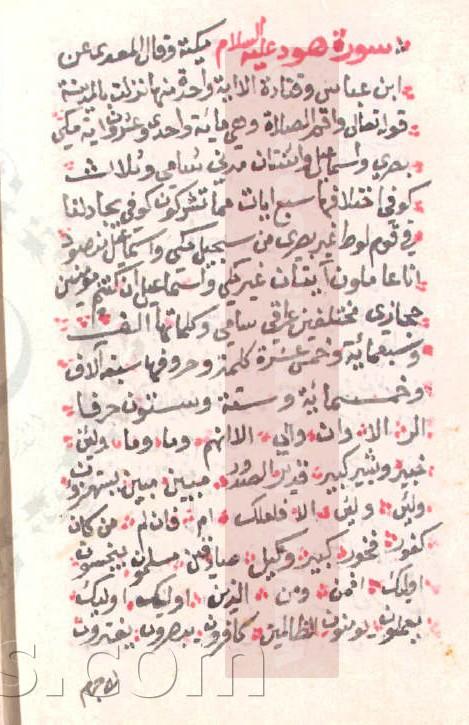 سورة هود عليه السلام مكية وقال المعدل عن
ابن عباس وقتادة الا اية واحدة منها نزلت بالمدينة
قوله تعالى واقم الصلاة وهي مائة واحدى وعشرون اية مكي
بصري واسماعيل واثنتان مدني شامي وثلاث
كوفي اختلافها سبع ايات مما تشركون كوفي يجادلنا
في قوم لوط غير بصري من سجيل مكي واسماعيل منضود
انا عاملون آيتان غير مكي واسماعيل ان كنتم مؤمنين
حجازي مختلفين عراقي شامي وكلماتها الف
وسبعمائة وخمس عشرة كلمة وحروفها سبعة آلاف
وخمسمائة وستة وستون حرفا
الر الا وان واني الا انهم وما وما ولئن
خبير وبشير كبير قدير الصدور مبين مبين يستهزؤن
ولئن ولئن الا فلعلك ام فان لم من كان
كفور فخور كبير وكيل صادقين مسلمون يبخسون
اوليك افمن ومن الذين اوليك اوليك
يعملون يؤمنون الظالمين كافرون يبصرون يفترون
لا جرم
s.com